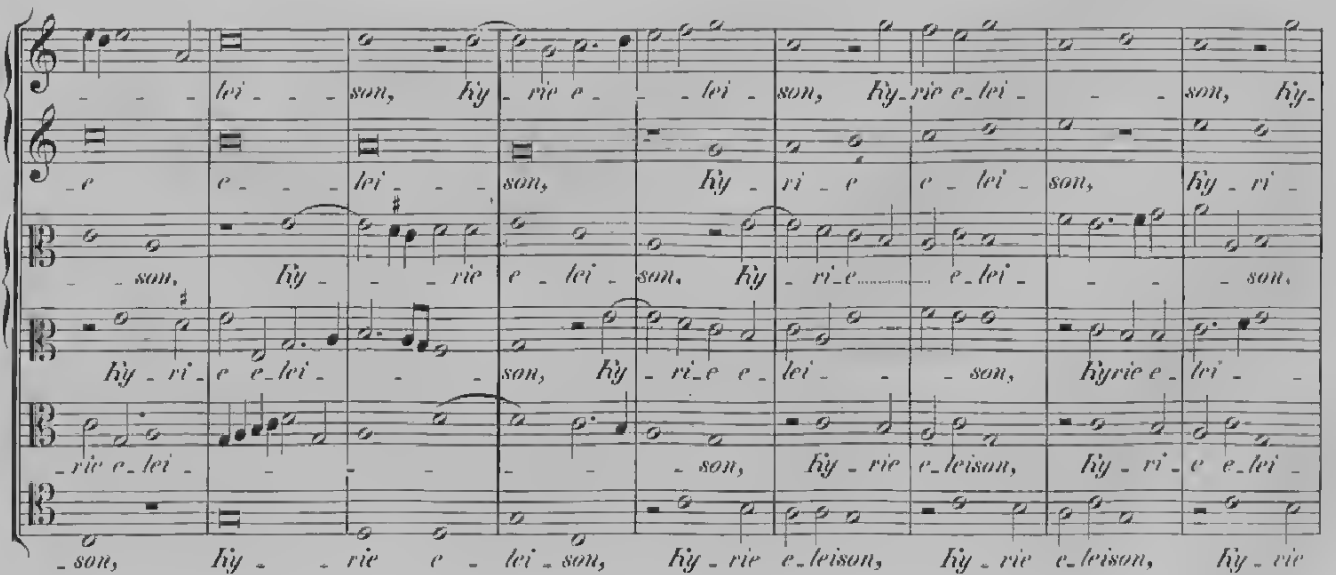 _ _ _ lei _ _ _ son, Ky _ rie e _ _ _ lei _ son, Ky_rie e_lei _ _ _ _ son, Ky_
_e e_ _ _ lei _ _ _ son, Ky _ ri _ e e _ lei _ son, Ky _ ri _
_ _ _ son, Ky _ _ _ rie e _ lei _ son, Ky _ ri_e e_lei _ _ _ _ son,
Ky _ ri _ e e_lei _ _ _ _ son, Ky _ ri_e e_ lei _ _ _ son, Kyrie e_ lei _ _
_rie e_lei _ _ _ _ _ _ _ son, Ky _ rie e_leison, Ky _ ri _ e e_lei _
_ son, Ky _ _ rie e _ lei _ son, Ky _ rie e_leison, Ky _ rie e_leison, Ky _ rie